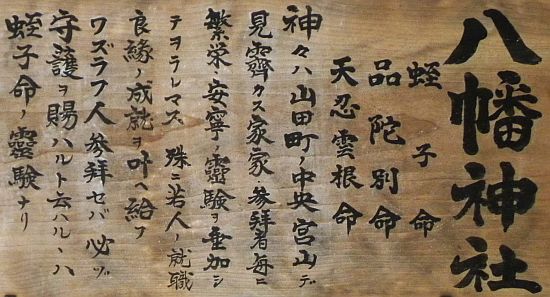 八幡神社
蛭子命
品陀別命
天忍雲根命
神々ハ山田町ノ中央宮山デ
見霽カス家家・参拝者毎ニ
繁栄ト安寧ノ霊験ヲ垂加シ
テヲラレマス 殊ニ若人ノ就職
良縁ノ成就ヲ叶ヘ給フ
ワズラフ人参拝セバ必ヅ
守護ヲ賜ハルト云ハルヽハ
蛭子命ノ靈験ナリ